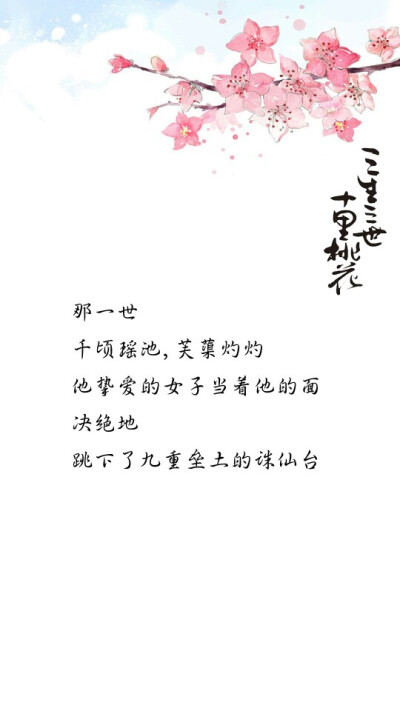 三生三世
十里桃花
那一世
千顷瑶池,芙蕖灼灼
他挚爱的女子当着他的面
决绝地
跳下了九重垒土的诛仙台